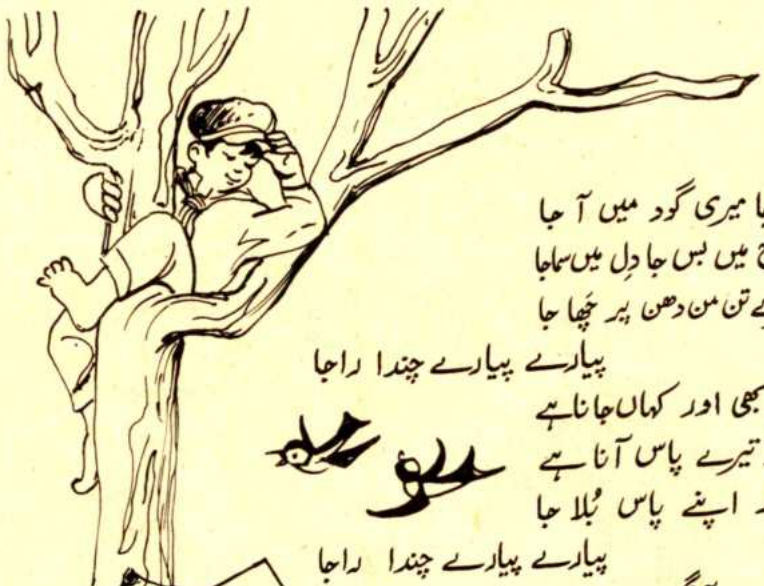 میری گود میں آ جا
میں بس جا دِل میں سما جا
تن من دھن پر چھا جا
پیارے پیارے چندا راجا
بھی اور کہاں جانا ہے
تیرے پاس آنا ہے
اپنے پاس بُلا جا
پیارے پیارے چندا راجا